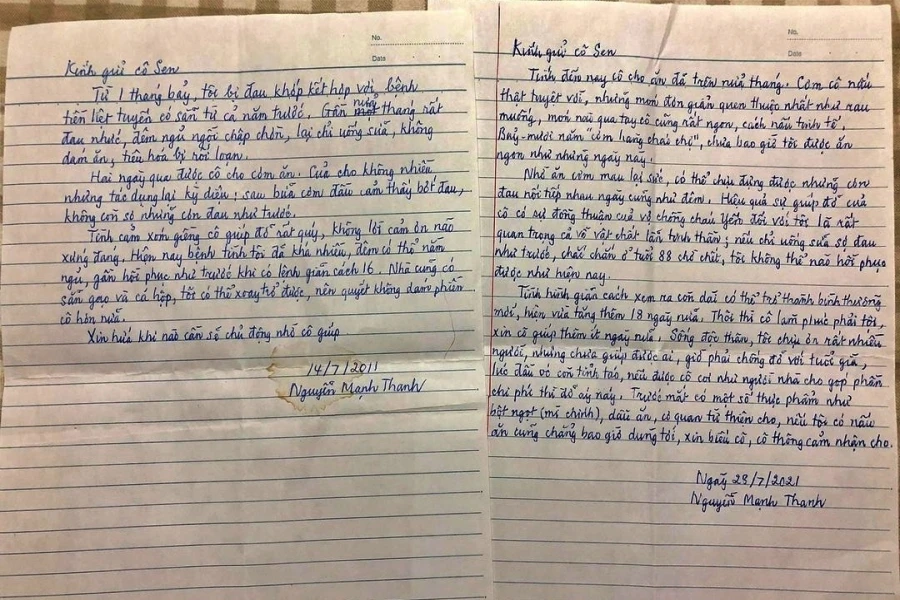 No.
Date
Kính gửi cô Sen
Từ 1 tháng bảy, tôi bị đau khớp kết hợp với bệnh
tiền liệt tuyến có sẵn từ cả năm trước. Gần nửa tháng rất
đau nhức, đêm ngủ ngồi chập chờn, lại chỉ uống sữa, không
dám ăn, tiêu hóa bị rối loạn.
Hai ngày qua được cô cho cơm ăn. Của cho không nhiều
nhưng tác dụng lại kỳ diệu; sau bữa cơm đầu cảm thấy bớt đau,
không còn sợ những cơn đau như trước.
Tình cảm xóm giềng cô giúp đỡ rất quý, không lời cảm ơn nào
xứng đáng. Hiện nay bệnh tình tôi đã khá nhiều, đêm có thể nằm
ngủ, gần hồi phục như trước khi có lệnh giãn cách 16. Nhà cũng có
sẵn gạo và cá hộp, tôi có thể xoay trở được, nên quyết không dám phiền
cô hơn nữa.
Xin hứa khi nào cần sẽ chủ động nhờ cô giúp
14/7/2011
Nguyễn Mạnh Thanh
No.
Date
Kính gửi cô Sen
Tính đến nay cô cho ăn đã trên nửa tháng. Cơm cô nấu
thật tuyệt vời, những món đơn giản quen thuộc nhất như rau
muống, mỗi nấu qua tay cô cũng rất ngon, cách nấu tinh tế.
Bảy-mươi năm "cơm hàng cháo chợ", chưa bao giờ tôi được ăn
ngon như những ngày này.
Nhờ ăn cơm mau lại sức, có thể chịu đựng được những cơn
đau nối tiếp nhau ngày cũng như đêm. Hiệu quả sự giúp đỡ của
cô có sự đồng thuận của vợ chồng cháu Yến đối với tôi là rất
quan trọng cả về vật chất lẫn tinh thần; nếu chỉ uống sữa sợ đau
như trước, chắc chắn ở tuổi 88 chờ chết, tôi không thể nào hồi phục
được như hiện nay.
Tình hình giãn cách xem ra còn dài có thể trở thành bình thường
mới, hiện vừa tăng thêm 18 ngày nữa. Thôi thì cô làm phúc phải tội,
xin cô giúp thêm ít ngày nữa. Sống độc thân, tôi chịu ơn rất nhiều
người, nhưng chưa giúp được ai, giờ phải chống đỡ với tuổi già,
lúc đầu óc còn tỉnh táo, nếu được cô coi như người nhà cho góp phần
chi phí thì đỡ áy náy. Trước mắt có một số thực phẩm như
bột ngọt (mì chính), dầu ăn, cơ quan từ thiện cho, nếu tôi có nấu
ăn cũng chẳng bao giờ dùng tới, xin biếu cô, cô thông cảm nhận cho.
Ngày 29/7/2021
Nguyễn Mạnh Thanh